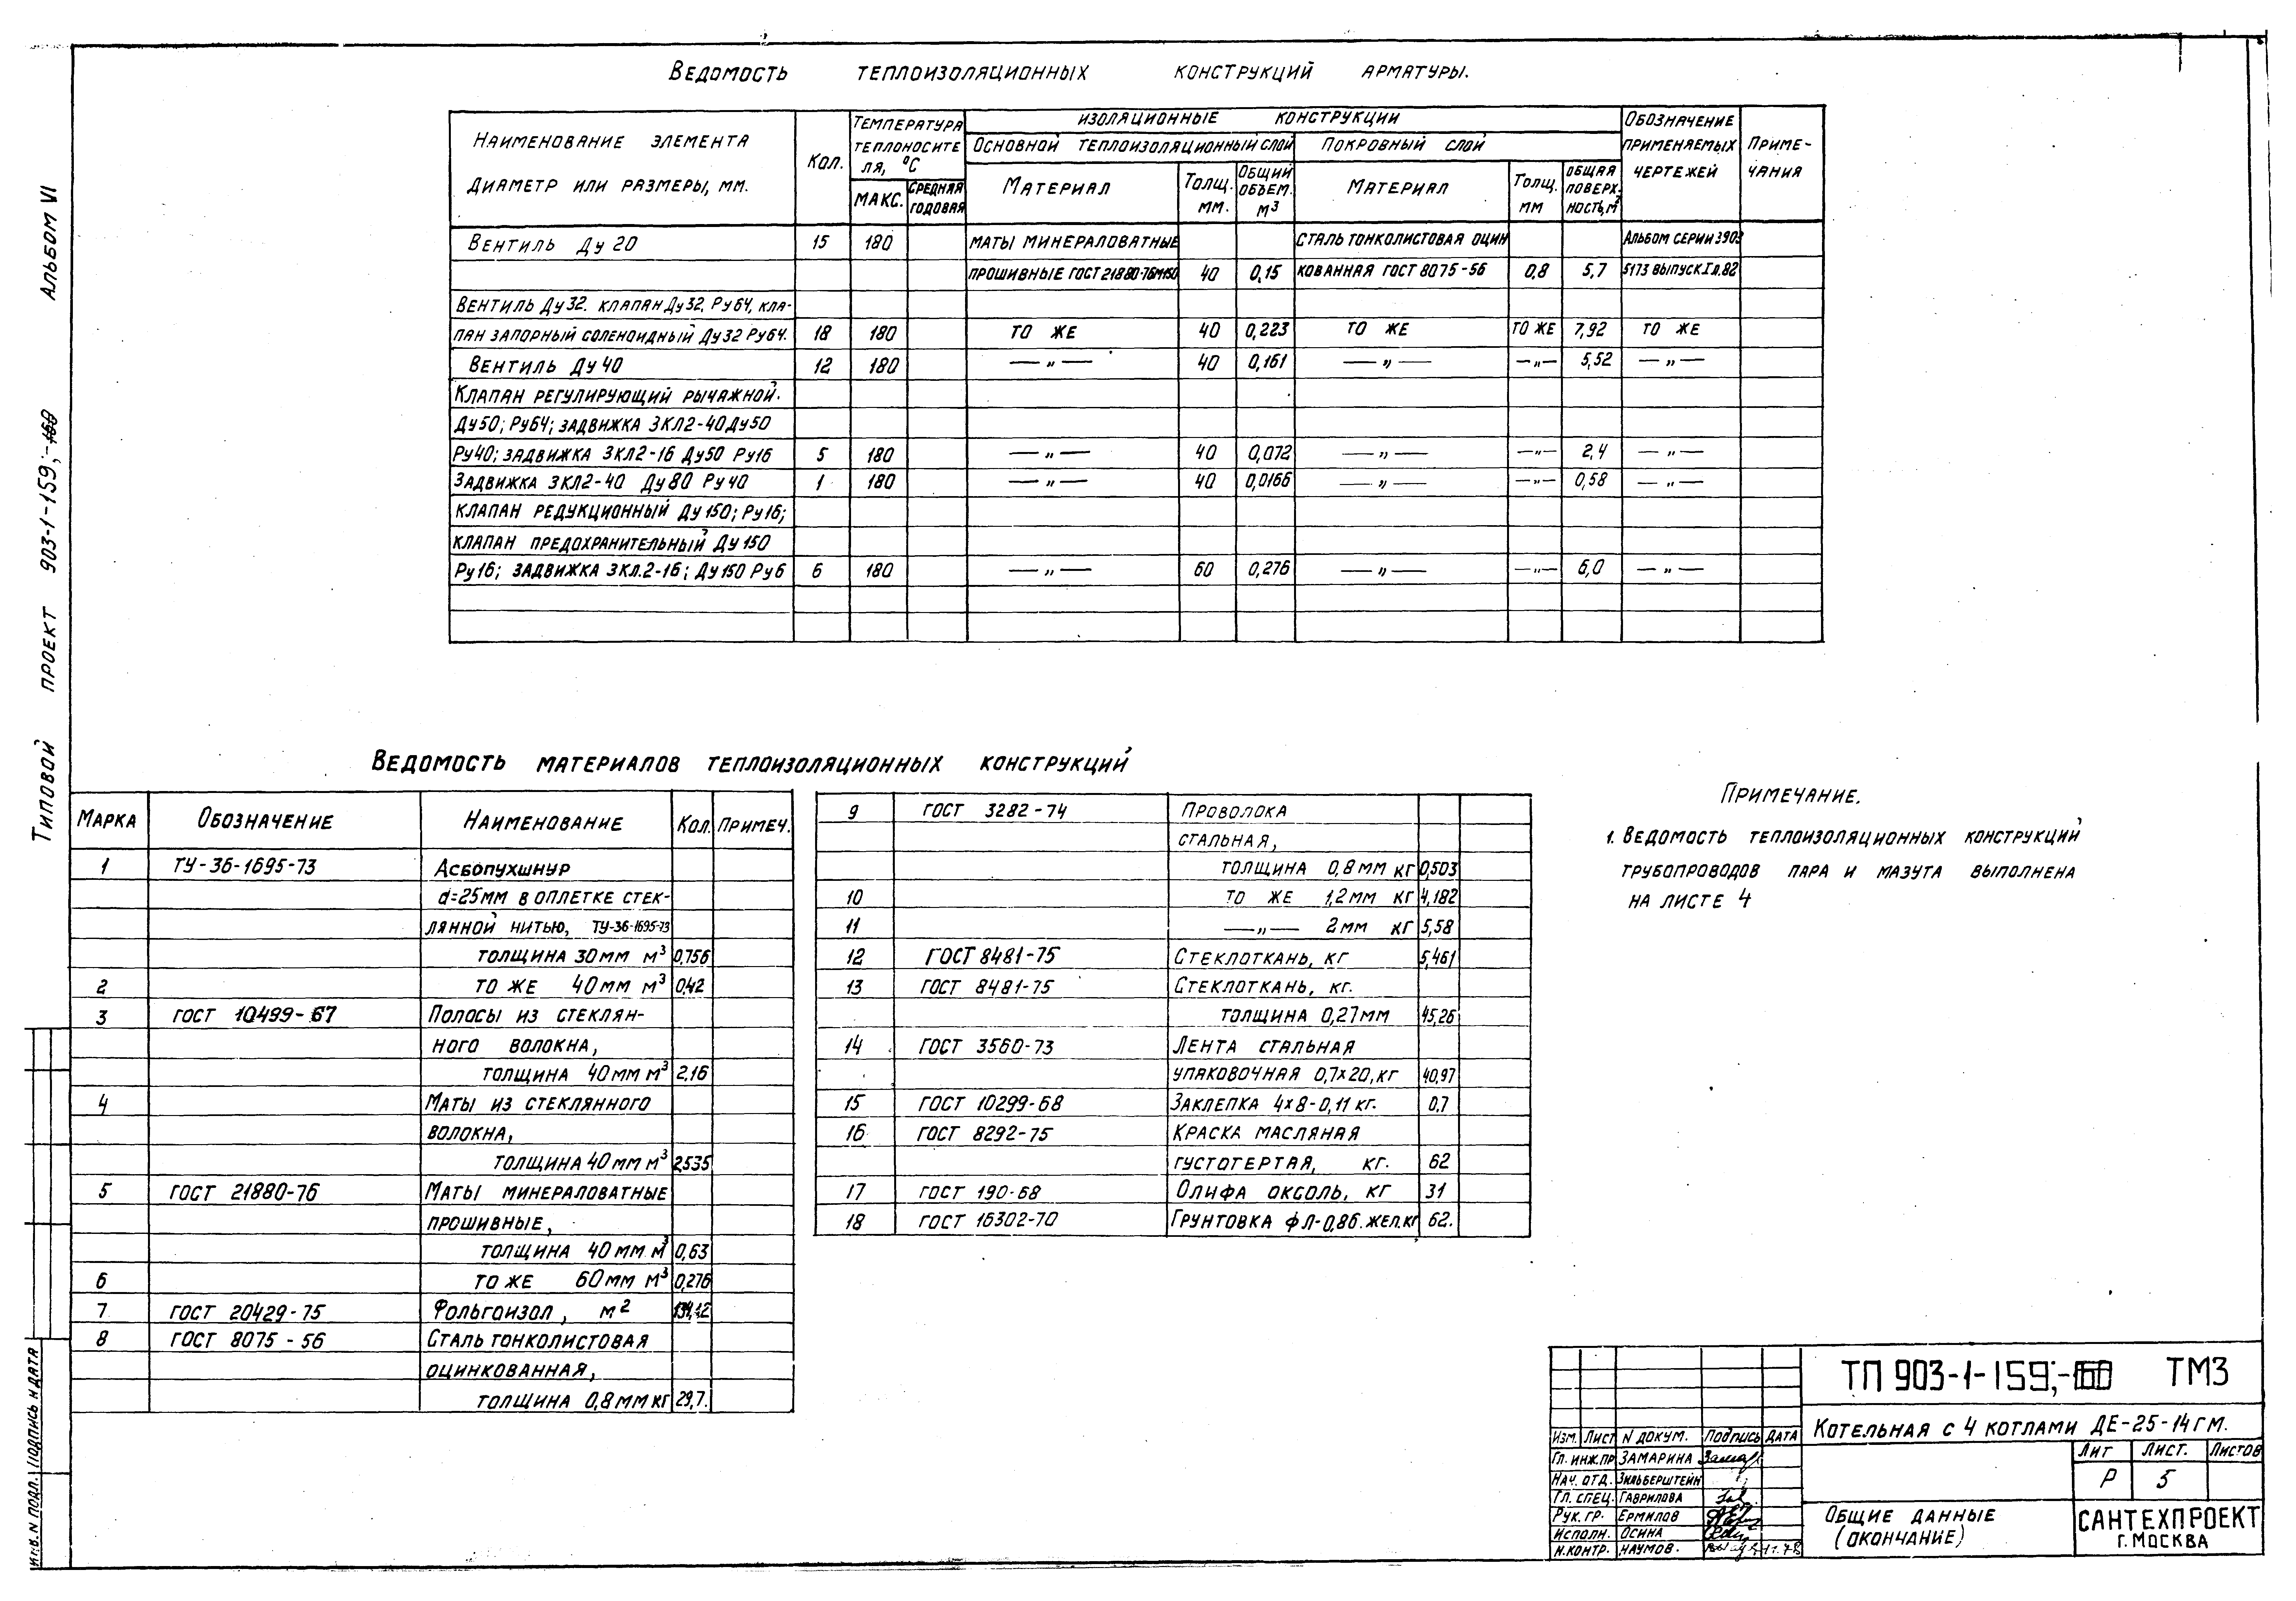 Ведомость теплоизоляционных конструкций арматуры.
Наименование элемента диаметр или размеры, мм. | Кол. | Температура теплоносителя, °С | Изоляционные конструкции | Обозначение применяемых чертежей | Примечания
Основной теплоизоляционный слой | Покровный слой
макс. | средняя годовая | Материал | Толщ. мм. | Общий объем. м³ | Материал | Толщ. мм | Общая поверхность, м²
Вентиль Ду 20 | 15 | 180 | маты минераловатные | сталь тонколистовая оцин | Альбом серии 3903
прошивные ГОСТ 21880-76М150 | 40 | 0,15 | кованная ГОСТ 8075-56 | 0,8 | 5,7 | 5173 выпуск I л.82
Вентиль Ду 32. клапан Ду 32, Ру 64, кла-
пан запорный соленоидный Ду 32 Ру 64. | 18 | 180 | то же | 40 | 0,223 | то же | то же | 7,92 | то же
Вентиль Ду 40 | 12 | 180 | —„— | 40 | 0,161 | —„— | —„— | 5,52 | —„—
Клапан регулирующий рычажной.
Ду 50; Ру 64; задвижка ЗКЛ2-40 Ду 50
Ру 40; задвижка ЗКЛ2-16 Ду 50 Ру 16 | 5 | 180 | —„— | 40 | 0,072 | —„— | —„— | 2,4 | —„—
Задвижка ЗКЛ2-40 Ду 80 Ру 40 | 1 | 180 | —„— | 40 | 0,0166 | —„— | —„— | 0,58 | —„—
клапан редукционный Ду 150; Ру 16;
клапан предохранительный Ду 150
Ру 16; задвижка ЗКЛ.2-16; Ду 150 Ру 6 | 6 | 180 | —„— | 60 | 0,276 | —„— | —„— | 6,0 | —„—
Ведомость материалов теплоизоляционных конструкций
Марка | Обозначение | Наименование | Кол. | Примеч.
1 | ТУ-36-1695-73 | Асбопухшнур
d=25мм в оплетке стек-
лянной нитью, ТУ-36-1695-73
толщина 30мм м³ | 0,756
2 | то же 40мм м³ | 0,42
3 | ГОСТ 10499-67 | Полосы из стеклян-
ного волокна,
толщина 40мм м³ | 2,16
4 | Маты из стеклянного
волокна,
толщина 40мм м³ | 2,535
5 | ГОСТ 21880-76 | Маты минераловатные
прошивные,
толщина 40мм м³ | 0,63
6 | то же 60мм м³ | 0,276
7 | ГОСТ 20429-75 | Фольгоизол, м² | 134,12
8 | ГОСТ 8075-56 | Сталь тонколистовая
оцинкованная,
толщина 0,8мм кг | 29,7.
9 | ГОСТ 3282-74 | Проволока
стальная,
толщина 0,8мм кг | 0,503
10 | то же 1,2мм кг | 4,182
11 | —„— 2мм кг | 5,58
12 | ГОСТ 8481-75 | Стеклоткань, кг | 5,461
13 | ГОСТ 8481-75 | Стеклоткань, кг.
толщина 0,27мм | 45,26
14 | ГОСТ 3560-73 | Лента стальная
упаковочная 0,7х20, кг | 40,97
15 | ГОСТ 10299-68 | Заклепка 4х8-0,11 кг. | 0,7
16 | ГОСТ 8292-75 | Краска масляная
густотертая, кг. | 62
17 | ГОСТ 190-68 | Олифа оксоль, кг | 31
18 | ГОСТ 16302-70 | Грунтовка ФЛ-0,86.жел.кг | 62.
Примечание.
1. Ведомость теплоизоляционных конструкций
трубопроводов пара и мазута выполнена
на листе 4
Типовой проект 903-1-159;-160 Альбом VI
Инв. N подл. Подпись и дата
ТП 903-1-159;-160 ТМ3
Котельная с 4 котлами ДЕ-25-14ГМ.
Изм. | Лист | N докум. | Подпись | Дата
Гл. инж.пр | Замарина
Нач. отд. | Зильберштейн
Гл. спец. | Гаврилова
Рук. гр. | Ермилов
Исполн. | Осина
Н.контр. | Наумов.
Лит | Лист. | Листов
Р | 5
Общие данные
(окончание)
САНТЕХПРОЕКТ
г. Москва